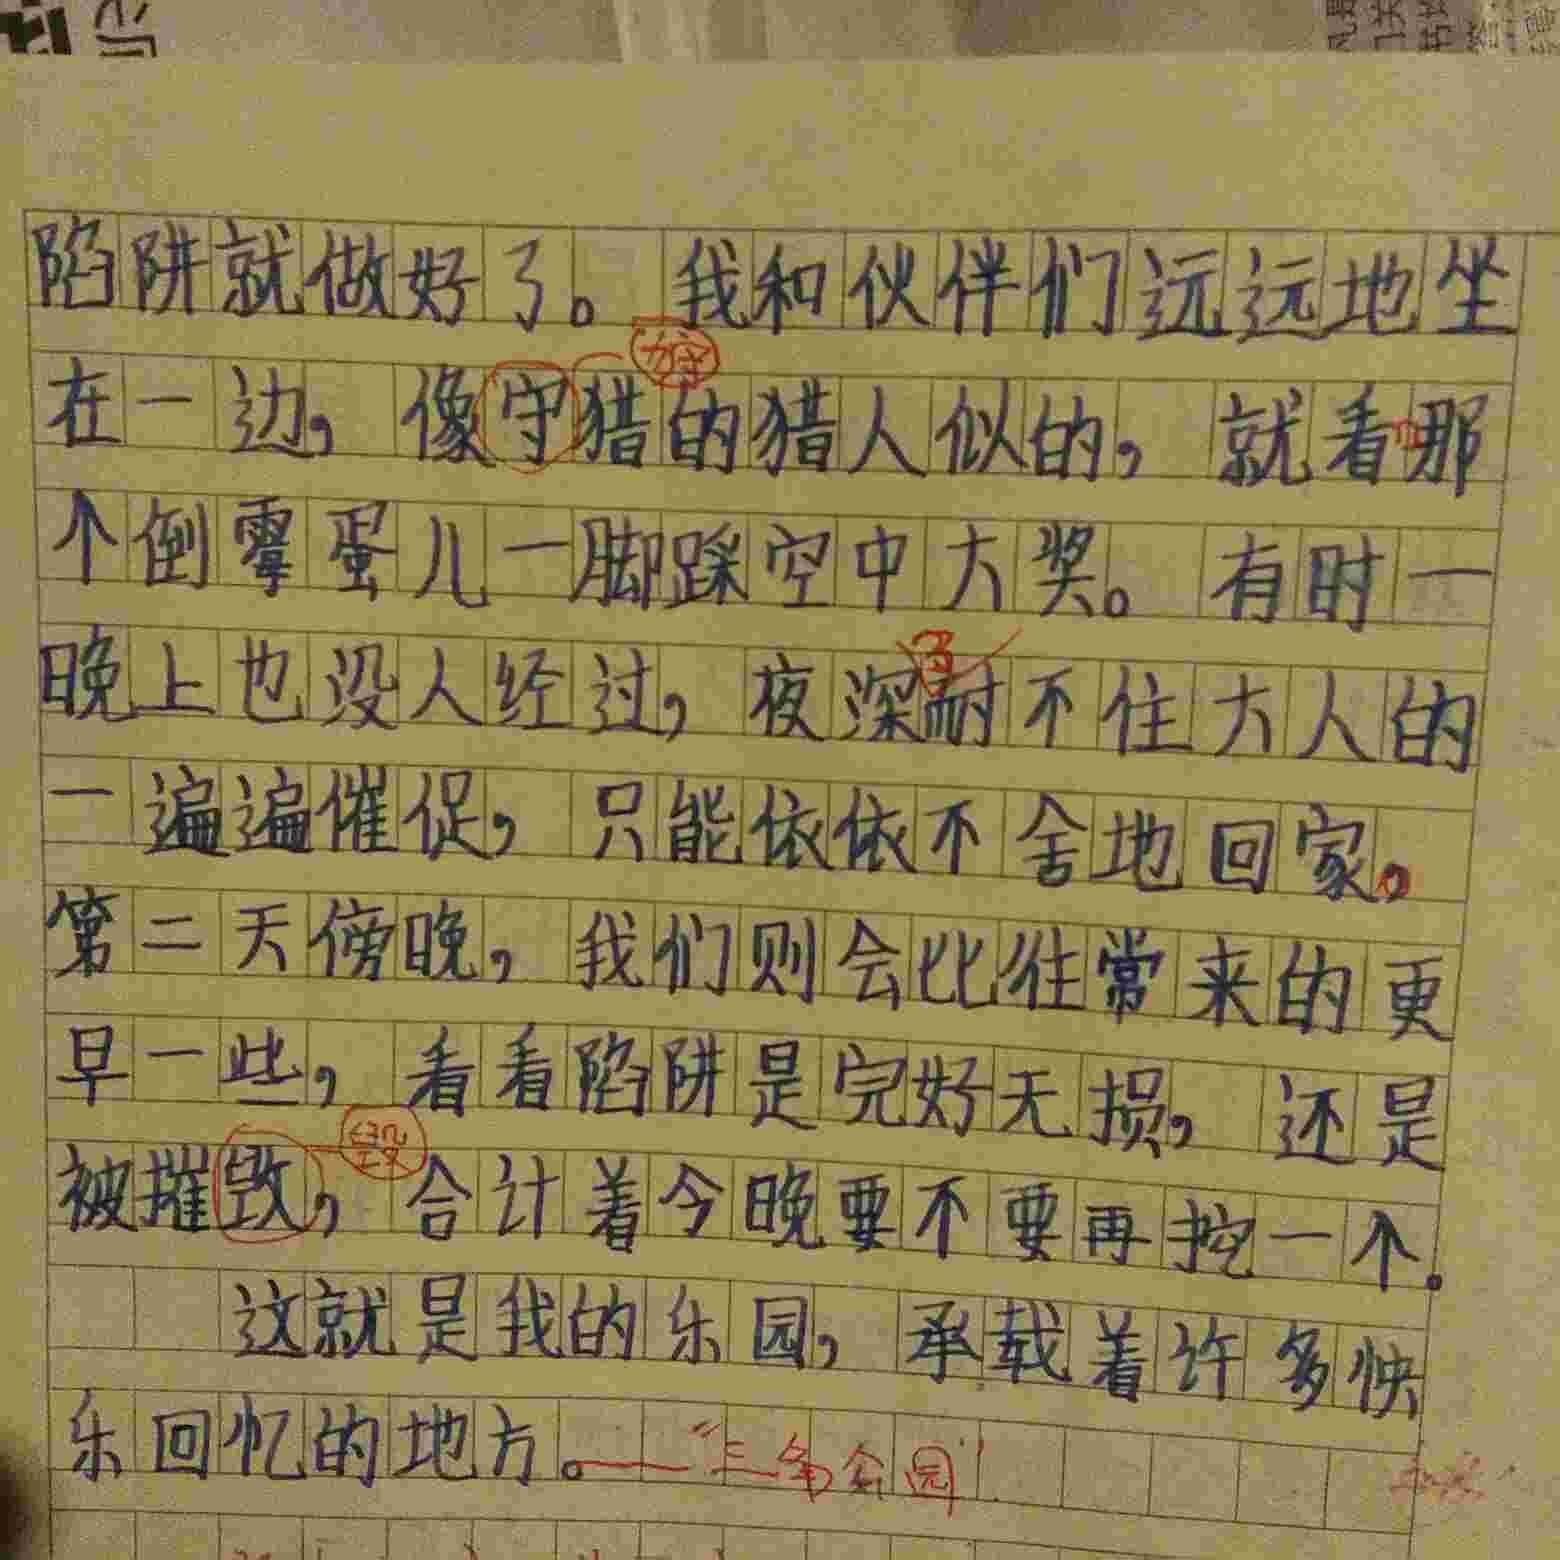 陷阱就做好了。我和伙伴们远远地坐
在一边，像守猎的猎人似的，就看那
个倒霉蛋儿一脚踩空中大奖。有时一
晚上也没人经过，夜深耐不住大人的
一遍遍催促，只能依依不舍地回家。
第二天傍晚，我们则会比往常来的更
早一些，看看陷阱是完好无损，还是
被摧毁，合计着今晚要不要再挖一个。
这就是我的乐园，承载着许多快
乐回忆的地方。——“三角公园”